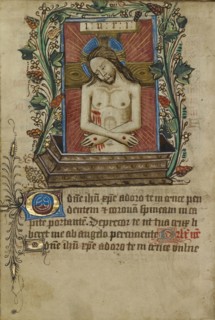 I N R I
O dñe ihū xp̄e adoro te in cruce pen
dentem et coronam spineam in ca
pite portantē. Deprecor te ut tua crux li
beret me ab angelo percuciente
O dñe ihū xp̄e adoro te in cruce vulne